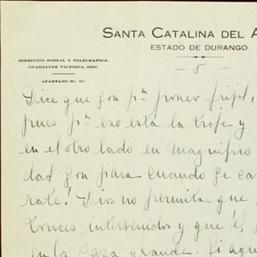 SANTA CATALINA DEL A
ESTADO DE DURANGO.
DIRECCION POSTAL Y TELEGRAFICA:
GUADALUPE VICTORIA, DGO.
APARTADO No.
-8-
Dice que son pa poner frijol,
pues pa eso está la trife y
en el otro lado en magnífico
dad son para cuando se ca
rate! Dios no permita que
truces intervenidos y que él,
en la casa grande. Si aqu